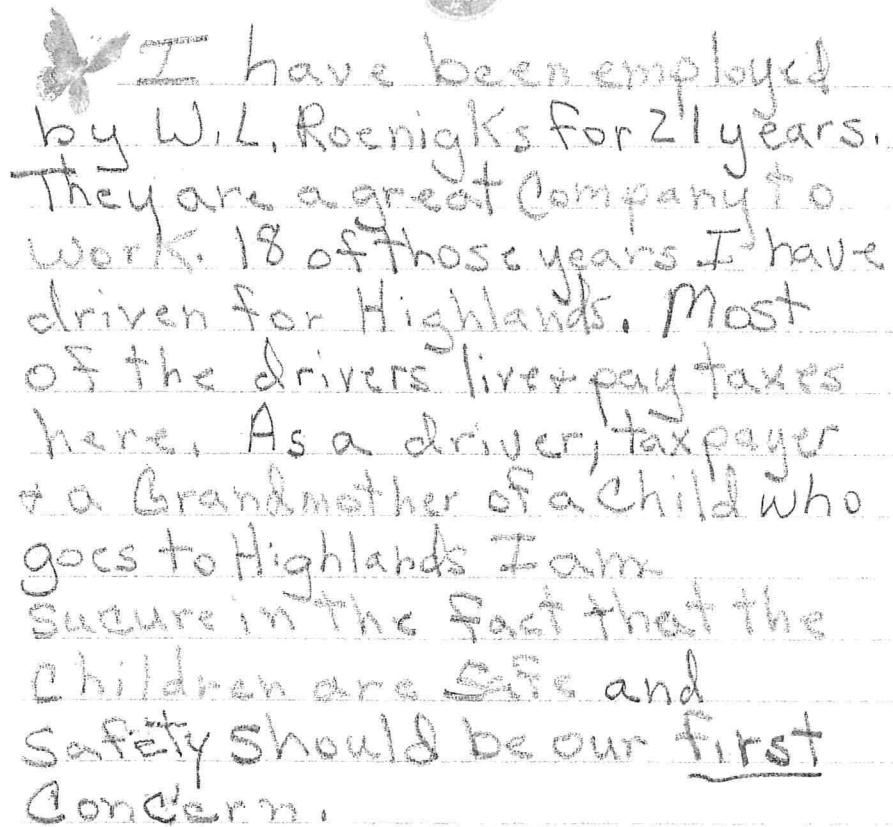 I have been employed
by W.L. Roenigks for 21 years.
They are a great Company to
work. 18 of those years I have
driven for Highlands. Most
of the drivers live + pay taxes
here. As a driver, taxpayer
+ a Grandmother of a Child who
goes to Highlands I am
sucure in the fact that the
Children are safe and
Safety should be our first
Concern.